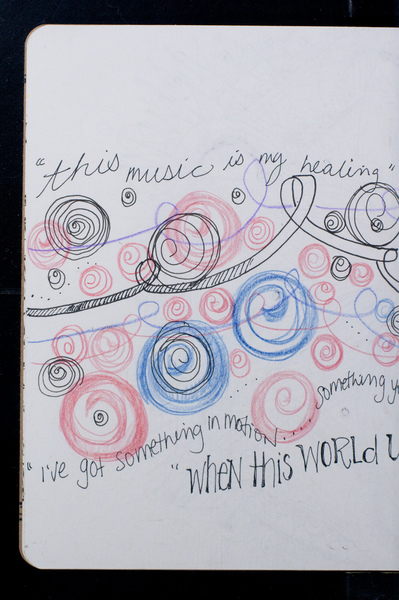 "this music is my healing"
something
"i've got something in motion.....
"WHEN this WORLD